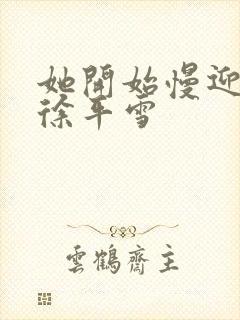 她開始慢迎
徐平雪
雲鶴齋主